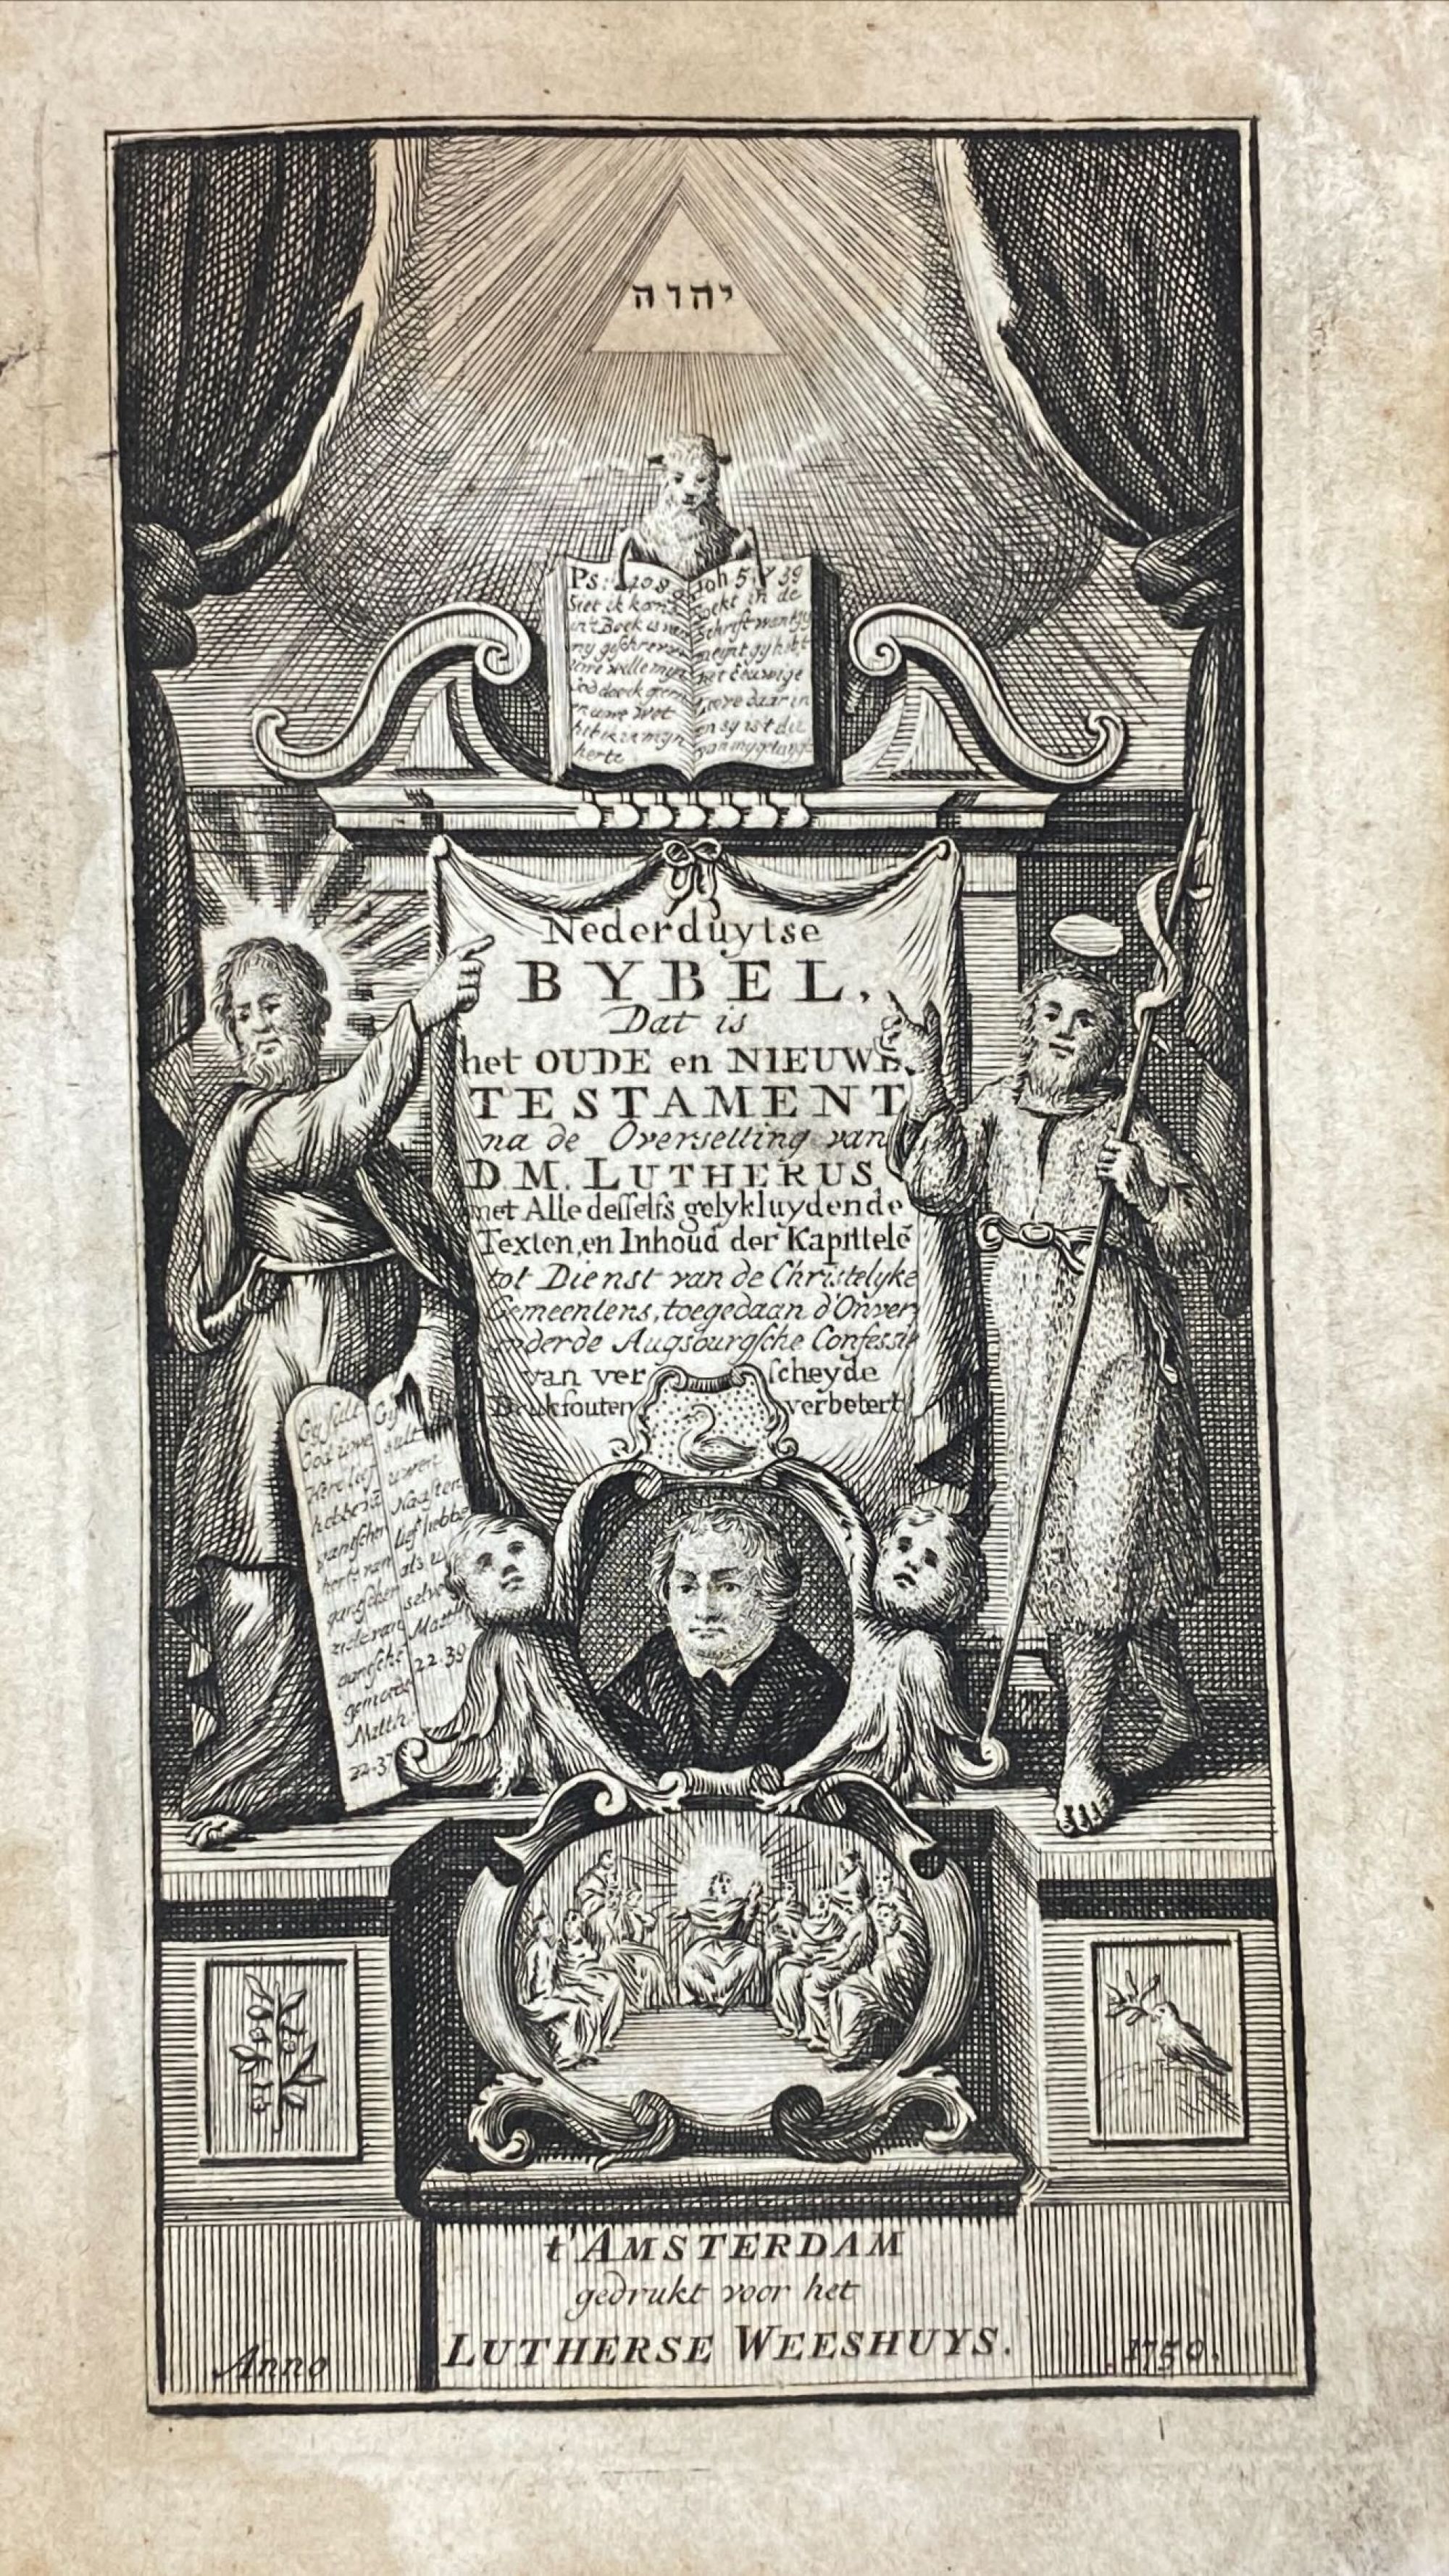 יהוה
Ps:
Siet ik kom
in't Boek is van
my geschreven
uwe wille myn
God doe ik gern
en uwe Wet
heb ik in myn
herte
Joh 5. V 39
soekt in de
Schrift want gy
meynt gy hebt
het Eeuwige
Leeve daar in
en sy ist die
van my getuygt
Nederduytse
BYBEL,
Dat is
het OUDE en NIEUWE
TESTAMENT
na de Oversetting van
D. M. LUTHERUS
met Alle desselfs gelykluydende
Texten, en Inhoud der Kapittelē
tot Dienst van de Christelyke
Gemeentens, toegedaan d'Onver
nderde Augsburgsche Confessie
van ver scheyde
Drukfouten verbetert
Gy sult
God uwe
Here lief
hebben
van schen
hert van
gantschen
ziele van
gantsche
gemoede
Matth.
22-37
Gy
sult
uwen
Naasten
lief hebbe
als u
selve
Matth
22-39
t'AMSTERDAM
gedrukt voor het
LUTHERSE WEESHUYS.
Anno 1750.